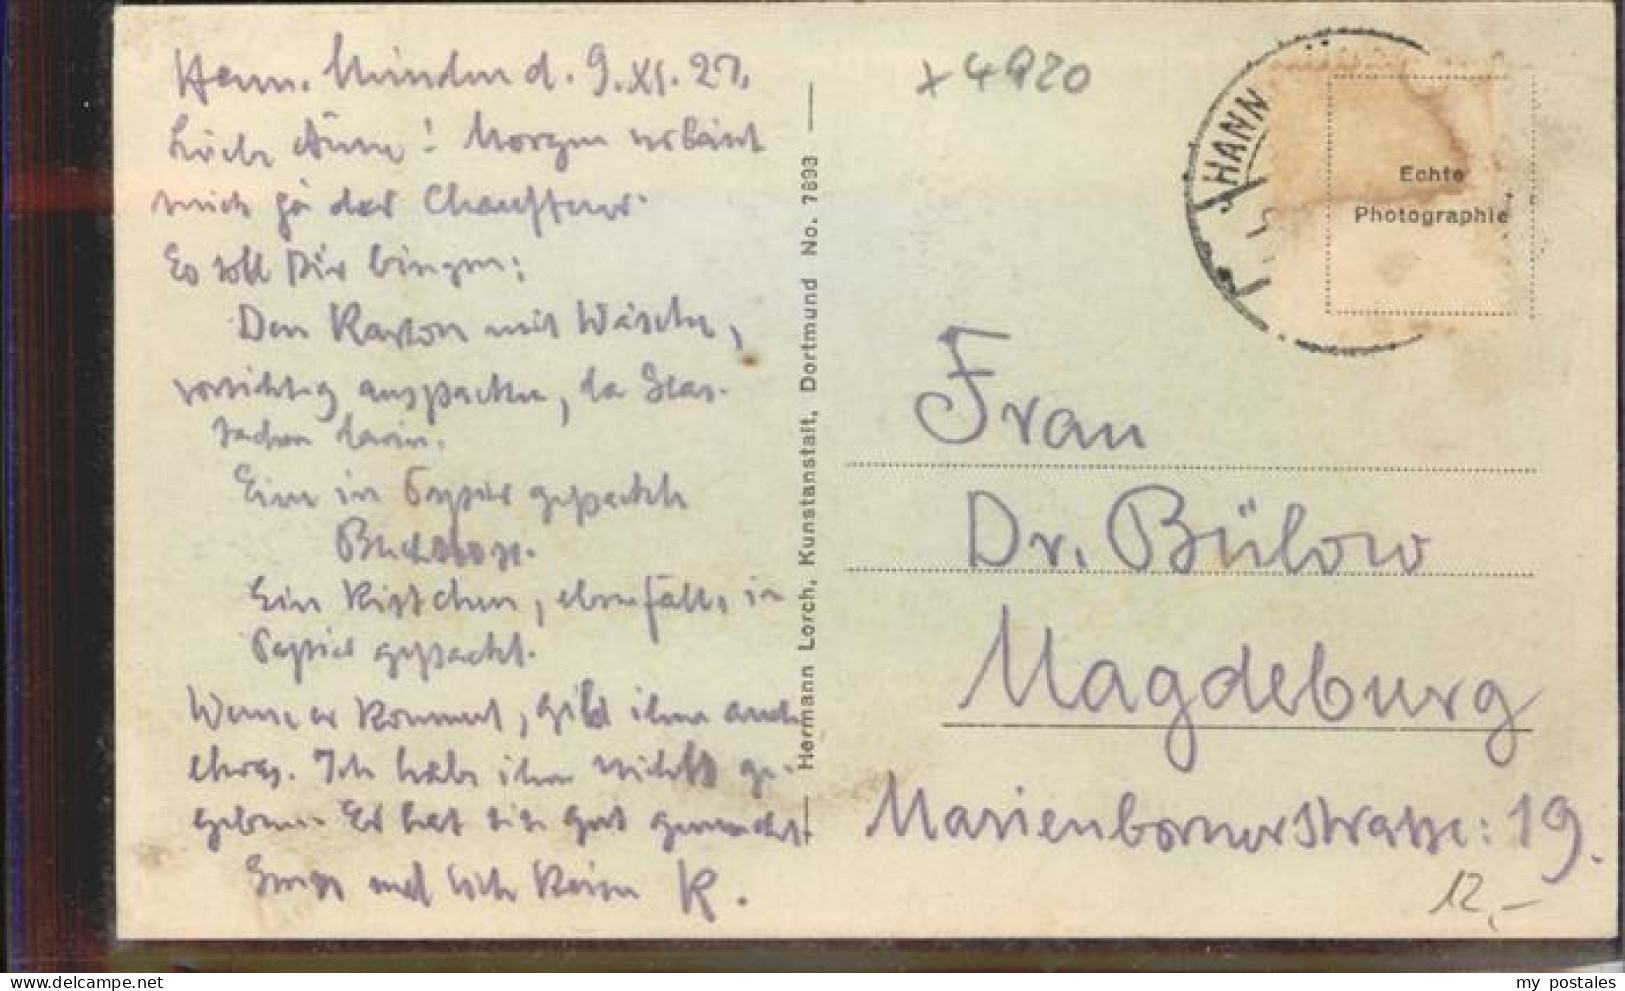 Hann. Münden d. 9. XI. 27.
Liebe Änne! Morgen verlässt
mich der Chauffeur.
Es soll Dir bringen:
Den Karton mit Wäsche,
vorsichtig auspacken, da Glas-
sachen darin.
Eine in Papier gepackte
Ein Kistchen, ebenfalls in
Papier gepackt.
Wenn er kommt, gibt ihm auch
etwas. Ich habe ihm nichts ge-
geben. Er hat sich gut gemacht.
Gruss und K.
Hermann Lorch, Kunstanstalt, Dortmund No. 7893
x 4920
HANN
Echte
Photographie
Frau
Dr. Bülow
Magdeburg
Marienbornerstrasse: 19.
12,-
my postales